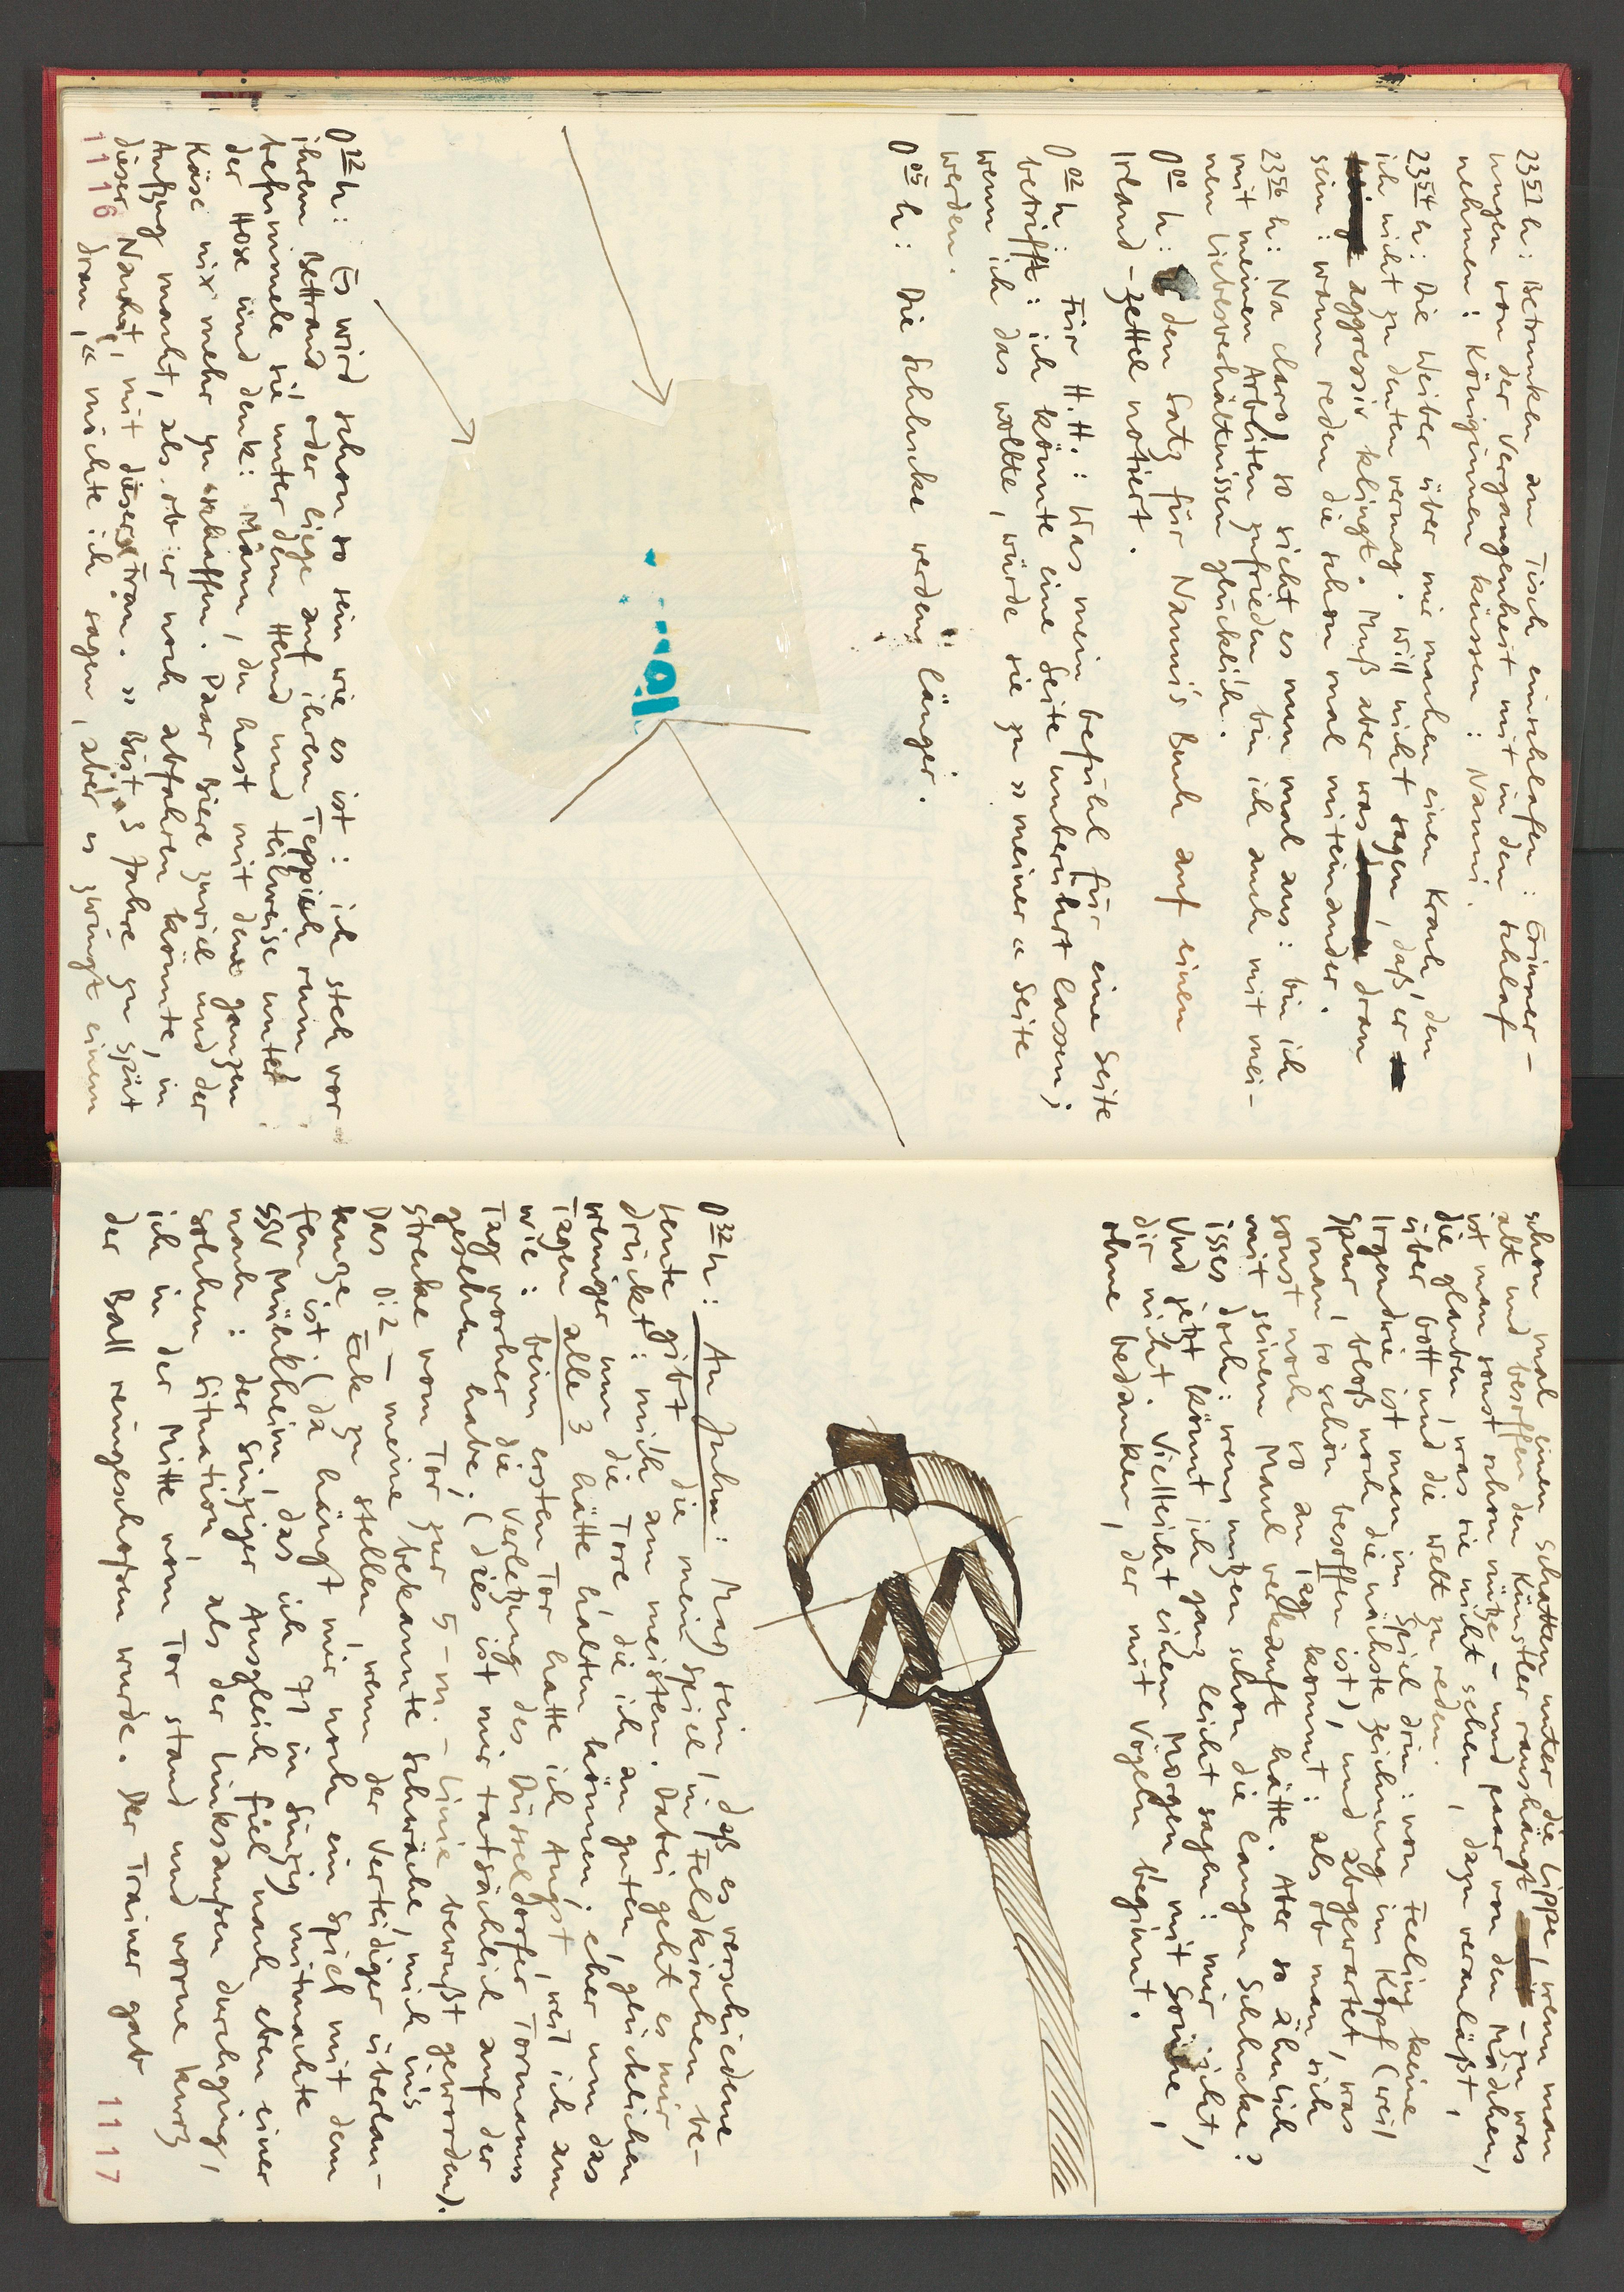 23⁵¹ h: Betrunken am Tisch einschlafen: Erinner-
ungen von der Vergangenheit mit in den Schlaf
nehmen: Königinnen küssen: Nanni.
23⁵⁴ h: Die Weiber über mir machen einen Krach, den
ich nicht zu deuten vermag. Will nicht sagen, daß er
aggressiv klingt. Muß aber was dran
sein: wann reden die schon mal miteinander.
23⁵⁶ h: Na clar, so sicht es nun mal aus: bin ich
mit meinen Arbeiten zufrieden bin ich auch mit mei-
nen Liebesverhältnissen glücklich.
0⁰⁰ h: den Satz für Nanni's Buch auf einen
Irland-zettel notiert.
0⁰² h: Für H.H.: Was mein befühl für eine Seite
betrifft: ich könnte eine Seite unberührt lassen;
wenn ich das wollte, würde sie zu »meiner« Seite
werden.
0⁰⁵ h: Die Schlucke werden länger.
0¹² h: Es wird schon so sein wie es ist: ich steh vor
ihrem Bettrand, oder liege auf ihrem Teppich rum,
befummele sie unter dem Hemd und teilweise unter
der Hose und denk: Mann, du hast mit dem ganzen
Käse nix mehr zu schaffen. Paar Biere zuviel und der
Aufzug macht, als ob er noch abfahren könnte, in
dieser Nacht, mit dieser Frau. »Bist 3 Jahre zu spät
dran,« möchte ich sagen, aber es zwingt einem
1116
schon mal einen Schatten unter die Lippe, wenn man
alt und besoffen den Künstler raushängt - zu was
ist man sonst schon nütze - und paar von den Mädchen,
die glauben, was sie nicht sehen, dazu veranläßt,
über Gott und die Welt zu reden.
Irgendwie ist man im Spiel drin: von Feeling keine
Spur, bloß noch die nächste Zeichnung im Kopf (weil
man so schön besoffen ist), und abgewartet, was
sonst noch so an Tag kommt: als ob man sich
mit seinem Maul verkauft hätte. Aber so ähnlich
isses doch: wem nutzen schon die langen Schlucke?
Und jetzt könnt ich ganz leicht sagen: mir nicht,
dir nicht. Vielleicht einem Morgen, mit Sonne,
ohne bedanken, der mit Vögeln beginnt.
0³² h: An Juhn: Mag sein, daß es verschiedene
Leute gibt die mein Spiel, im Feldkirchen be-
drückt: mich am meisten. Dabei geht es mir
weniger um die Tore, die ich an guten, glücklichen
Tagen alle 3 hätte halten können; eher um das
wie: beim ersten Tor hatte ich Angst, weil ich am
Tag vorher die Verletzung des Düsseldorfer Tormanns
gesehen habe. (dies ist mir tatsächlich auf der
Strecke vom Tor zur 5-m.-Linie bewußt geworden).
Das 0:2 - meine bekannte Schwäche, mich in's
kurze Eck zu stellen, wenn der Verteidiger überlau-
fen ist. (da hängt mir noch ein Spiel mit dem
SSV Mühlheim, das ich in Sinzig mitmachte
nach: der Sinziger Ausgleich fiel nach eben einer
solchen Situation, als der Linksaußen durchging,
ich in der Mitte vom Tor stand und vorne kurz
der Ball reingeschoßen wurde. Der Trainer gab
1117